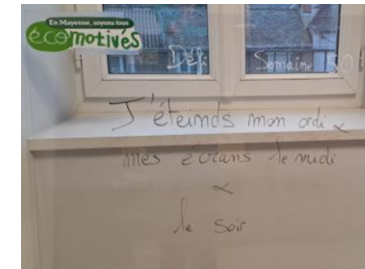 En Mayenne, soyons tous
écomotivés
Défi Semaine 50
J'éteinds mon ordi &
mes écrans le midi
&
le soir